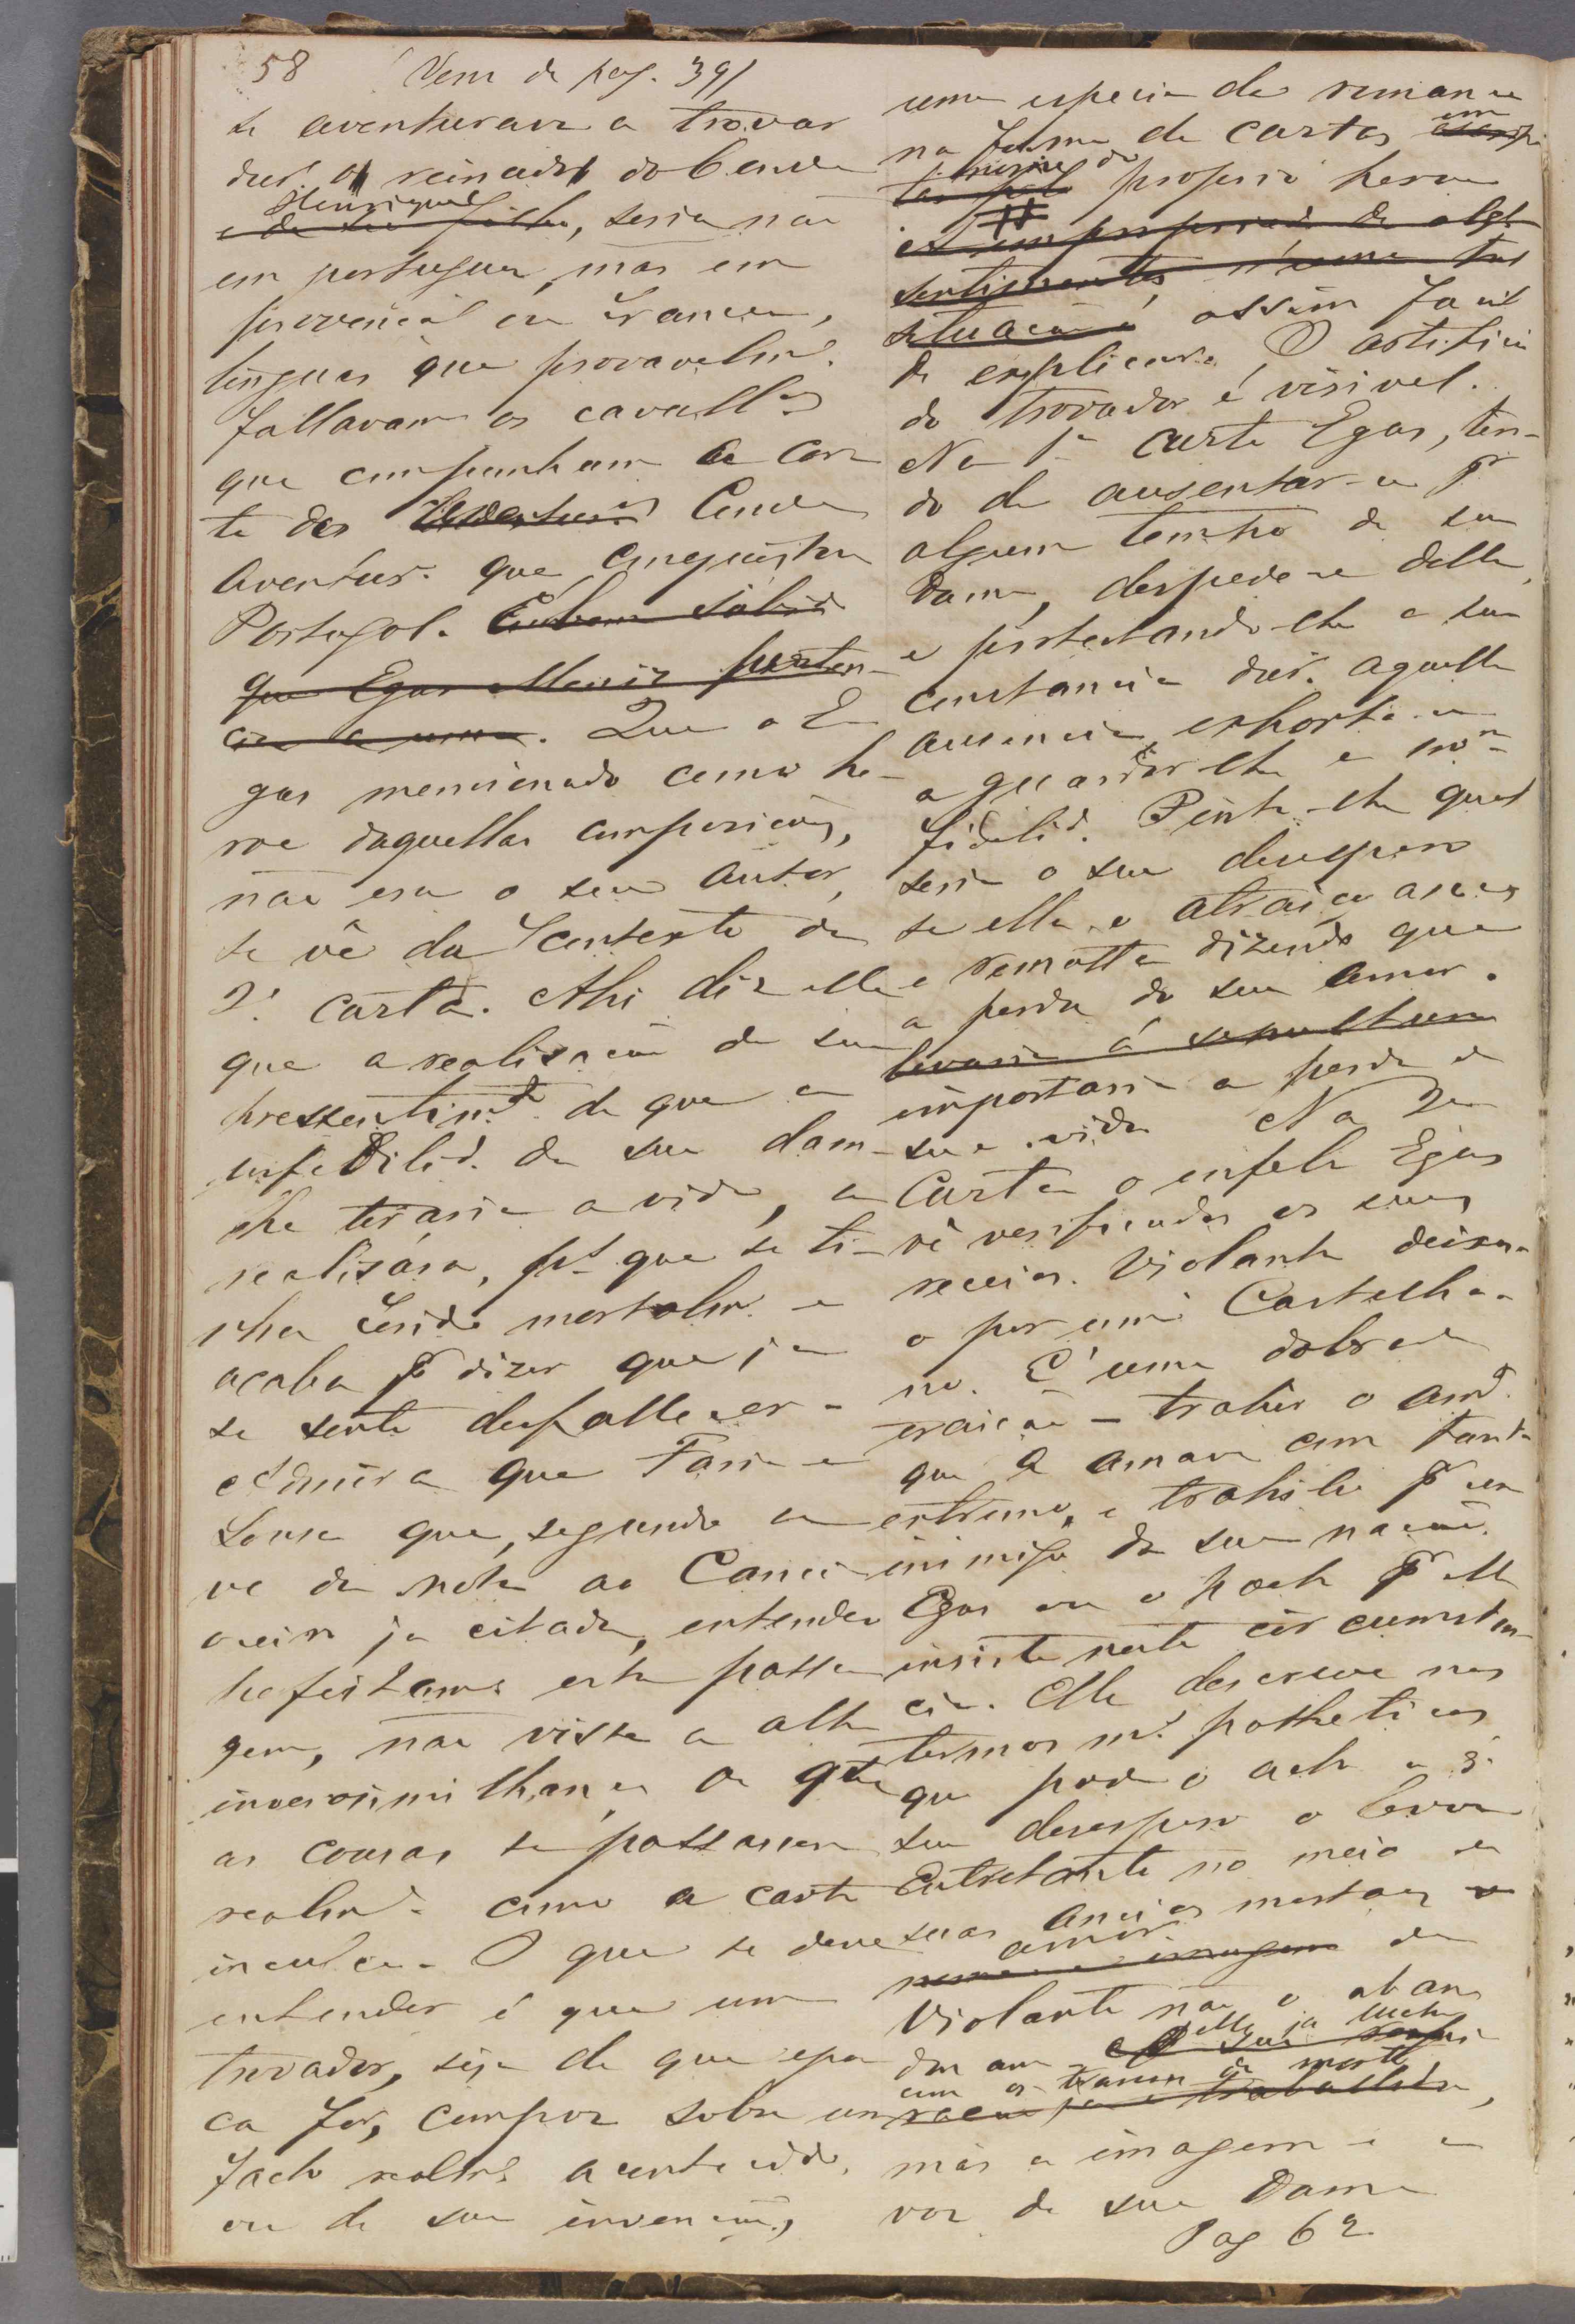 58 Vem de pag. 39/
se aventurava a trovar
dur. o reinado do Conde
Henrique
e de seu filho, seria não
em portuguez, mas em
provençal ou Francez,
linguas que provavelm.e
fallavam os cavall.os
que compunham a cor
te dos Conde
Aventur. que conquistou
Portugal. Embora saiba
que Egas Moniz perten-
cia a uma. Que o E
gas mencionado como he-
roe daquellas composições,
não era o seu autor,
se vê do contexto da
2.ª carta. Ahi diz elle
que a realisação de seu
pressentim.to de que a
infidilid. da sua dama
lhe tiraria a vida, se
realisára, p.s que se ti-
nha ferido mortalm. e
acaba p.r dizer que já
se sente desfallecer.
Admira que Faria e
Sousa que, segundo se
vê da nota ao Canci
oneiro ja citada, entendeu
esta passa
gem, não visse a alta
inverosimilhança de que
as cousas se passassem
realm.e como a carta
inculca. O que se deve
entender é que um
trovador, seja de que epo
ca for, compoz sobre um
facto realm.e acontecido,
ou de sua invenção,
uma especie de romance
na forma de cartas em
nome do proprio heroe
#
sentimentos, n'uma tal
situação é assim facil
de explicar. O artificio
do trovador é visivel.
Na 1.ª carta Egas, ten-
do de ausentar-se p.r
algum tempo de sua
Dama, despede-se della,
e protestando-lhe a sua
constancia dur. aquella
ausencia, exhorta-a
a guardar-lhe a mm.a
fidelid. Pinta-lhe qual
seria o seu desespero
se ella o atraiçoasse
e remata dizendo que
a perda do seu amor
levaria á sepultura
importaria a perda da
sua vida. Na 2.ª
Carta o infeliz Egas
vê verificados os seus
receios. Violante deixou-
o por um Castelha-
no. É uma dobrada
traição – trahir o am.e
que a amava com tanto
extremo, e trahil-o p.r um
inimigo da sua nação.
Egas ou o poeta p.r elle
insiste nesta circumstan-
cia. Elle descreve nos
termos m.s patheticos
que pode o acto a q.
seu desespero o levou
Entretanto no meio de
suas ancias mortaes o
amor
nem a imagem de
Violante não o aban
elle já lucta
dona
com os transes da morte
trabalhada,
mas a imagem e a
voz de sua Dama
Pag 62